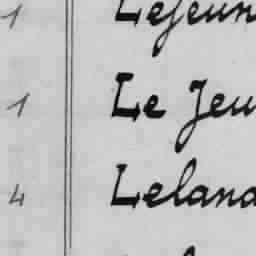 1 Lejeun
1 Le Jeu
4 Leland